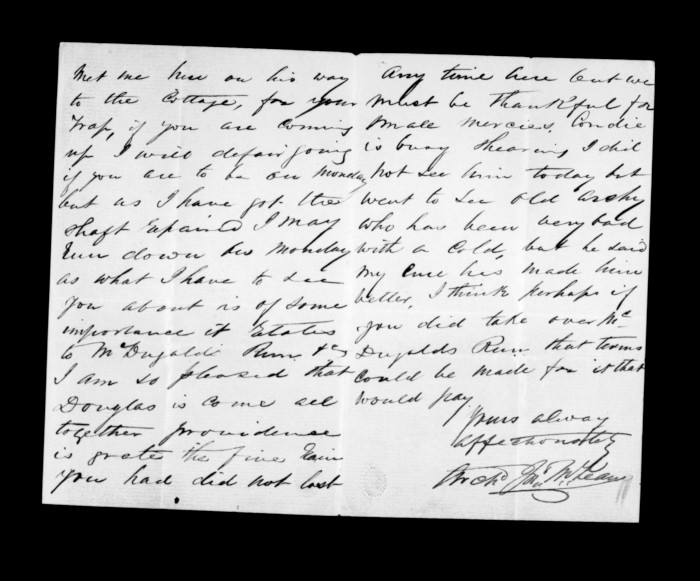 Met me here on his way
to the Cottage, for your
Trap, if you are coming
up I will defair going
if you are to be on Monday
but as I have got the
shaft Repaired I may
Run down this Monday
as what I have to see
you about is of some
importance it Estates
to McDugalds Run &c
I am so pleased that
Douglas is come all
together providence
is grate the fine Rain
you had did not last
any time here but we
must be thankful for
Smale mercies, Condie
is busy Shearing I did
not see him today but
went to see old Archy
who has been very bad
with a Cold, but he said
my cure has made him
better, I think perhaps if
you did take over Mc
Dugalds Run that terms
could be made for it that
would pay
Yours alway
affectionately
Archd Jno McLean